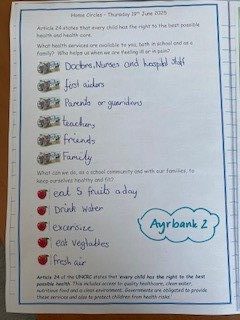 Home Circles – Thursday 19th June 2025
Article 24 states that every child has the right to the best possible
health and health care.
What health services are available to you, both in school and as a
family? Who helps us when we are feeling ill or in pain?
Doctors, Nurses and hospital staff
first aiders
Parents or guardians
teachers
friends
Family
What can we do, as a school community and with our families, to
keep ourselves healthy and fit?
eat 5 fruits a day
Drink water
excersize
eat vegtables
fresh air
Ayrbank 2
Article 24 of the UNCRC states that every child has the right to the best
possible health. This includes access to quality healthcare, clean water,
nutritious food and a clean environment. Governments are obligated to provide
these services and also to protect children from health risks.